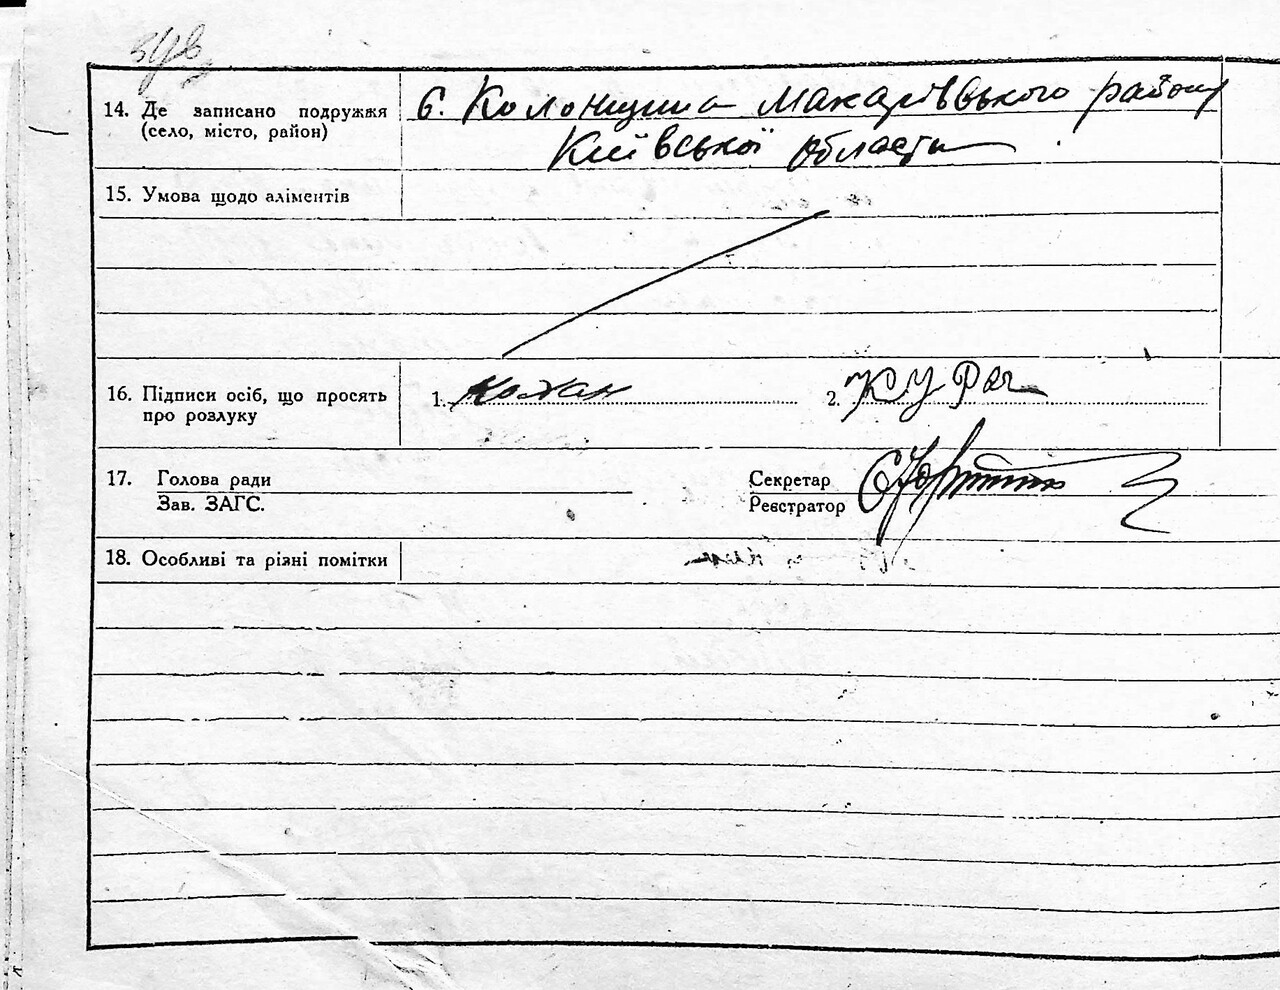 14. Де записано подружжя
(село, місто, район)
с. Колонщина Макарівського району
Київської области
15. Умова щодо аліментів
16. Підписи осіб, що просять
про розлуку
1. Кожан
2.
17. Голова ради
Зав. ЗАГС.
Секретар
Реєстратор
18. Особливі та різні помітки